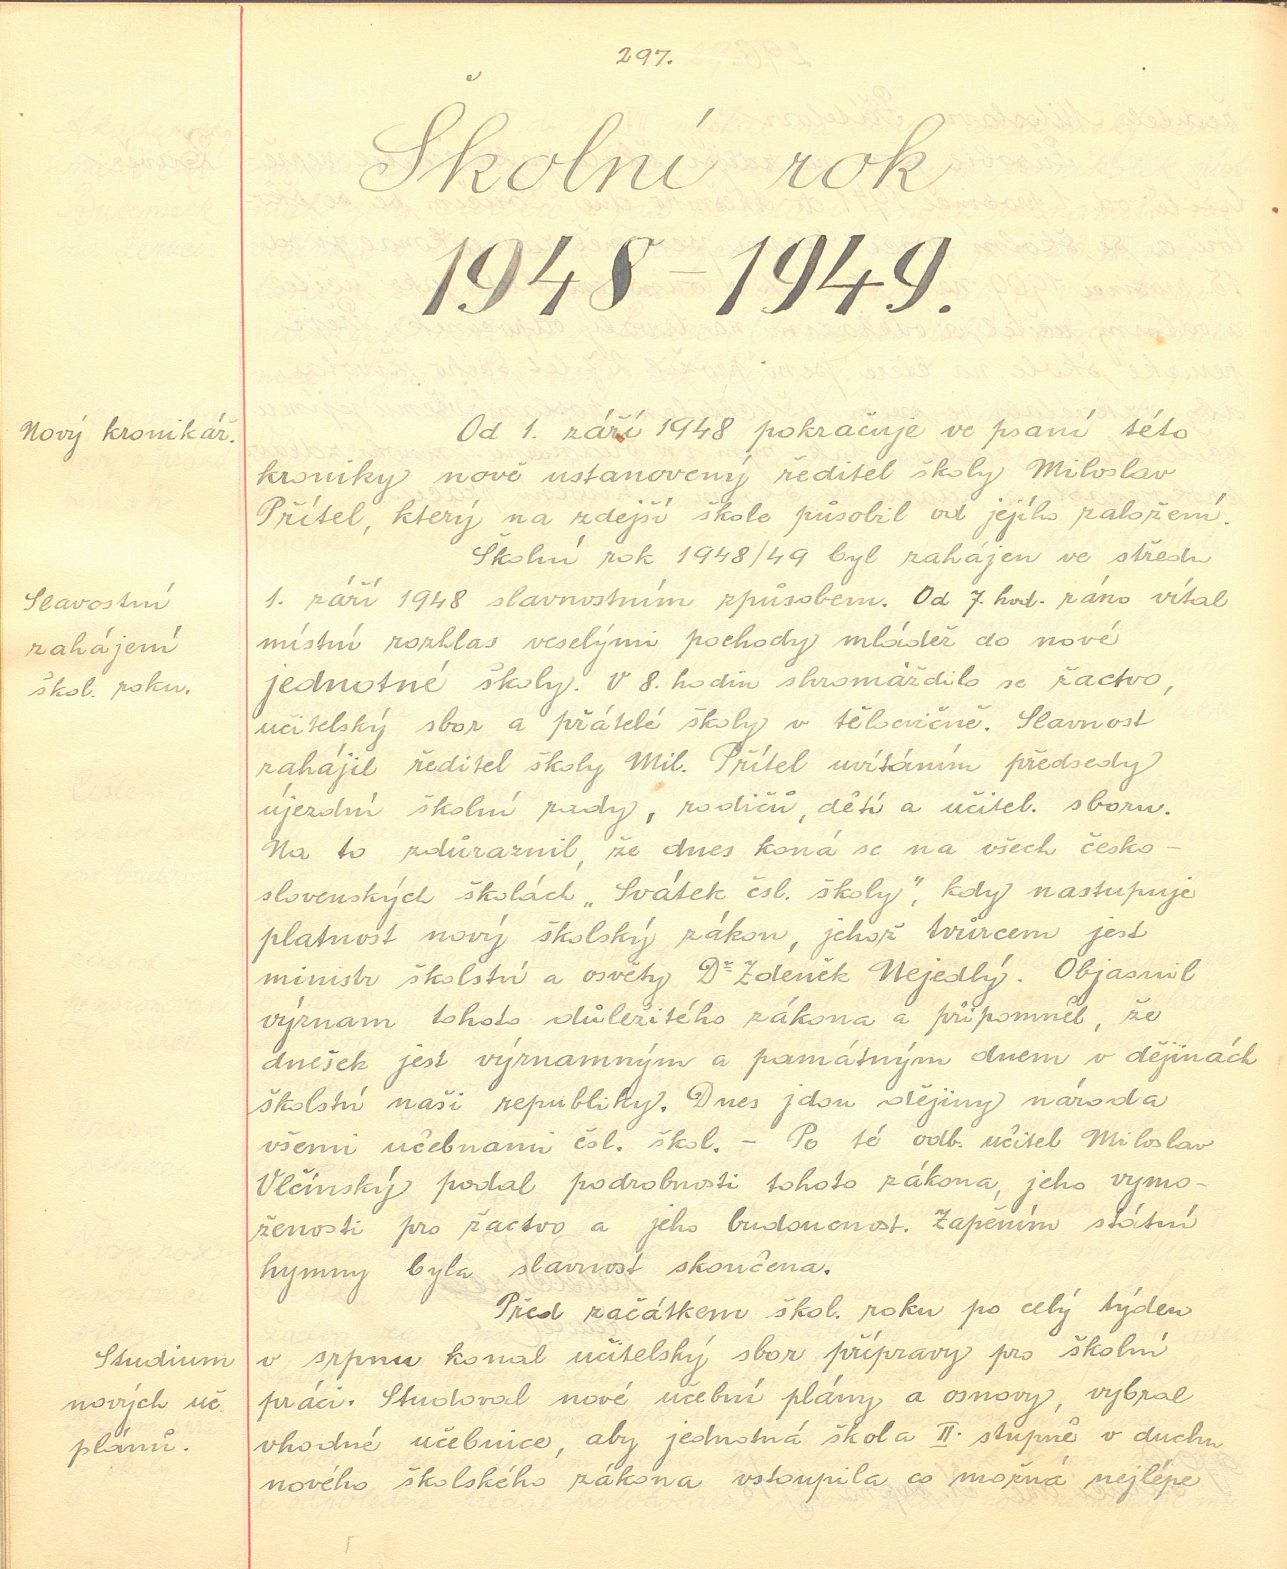 297.
Školní rok
1948 – 1949.
Nový kronikář.
Od 1. září 1948 pokračuje ve psaní této
kroniky nově ustanovený ředitel školy Miloslav
Přítel, který na zdejší škole působil od jejího založení.
Školní rok 1948/49 byl zahájen ve středu
Slavostní
zahájení
škol. roku.
1. září 1948 slavnostním způsobem. Od 7. hod. ráno vítal
místní rozhlas veselými pochody mládež do nové
jednotné školy. V 8. hodin shromáždilo se žactvo,
učitelský sbor a přátelé školy v tělocvičně. Slavnost
zahájil ředitel školy Mil. Přítel uvítáním předsedy
újezdní školní rady, rodičů, dětí a učitel. sboru.
Na to zdůraznil, že dnes koná se na všech česko-
slovenských školách „Svátek čsl. školy", kdy nastupuje
platnost nový školský zákon, jehož tvůrcem jest
ministr školství a osvěty Dr Zdeněk Nejedlý. Objasnil
význam tohoto důležitého zákona a připomněl, že
dnešek jest významným a památným dnem v dějinách
školství naši republiky. Dnes jdou dějiny národa
všemi učebnami čsl. škol. – Po té odb. učitel Miloslav
Vlčínský podal podrobnosti tohoto zákona, jeho vymo-
ženosti pro žactvo a jeho budoucnost. Zapěním státní
hymny byla slavnost skončena.
Před začátkem škol. roku po celý týden
Studium
nových uč
plánů.
v srpnu konal učitelský sbor přípravy pro školní
práci. Studoval nové učební plány a osnovy, vybral
vhodné učebnice, aby jednotná škola II. stupně v duchu
nového školského zákona vstoupila co možná nejlépe